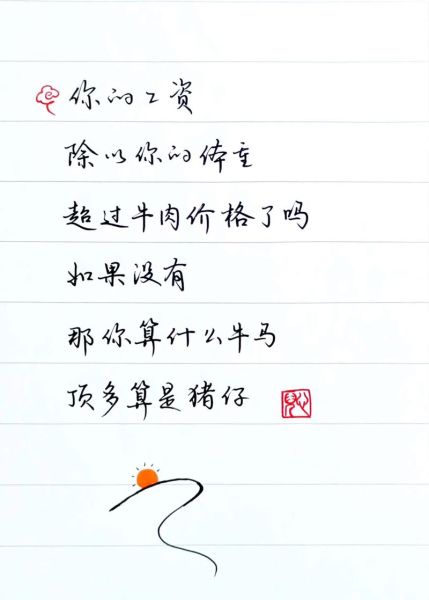 你的工资
除以你的体重
超过牛肉价格了吗
如果没有
那你算什么牛马
顶多算是猪仔